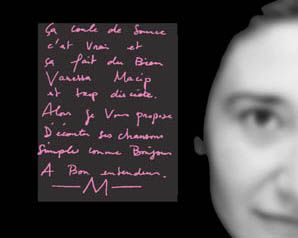 ça coule de Source
c'est Vrai et
ça fait du Bien
Vanessa Macip
et trop discrète.
Alors je Vous propose
D'écouter ses chansons
Simple comme Bonjour
A Bon entendeur.
M